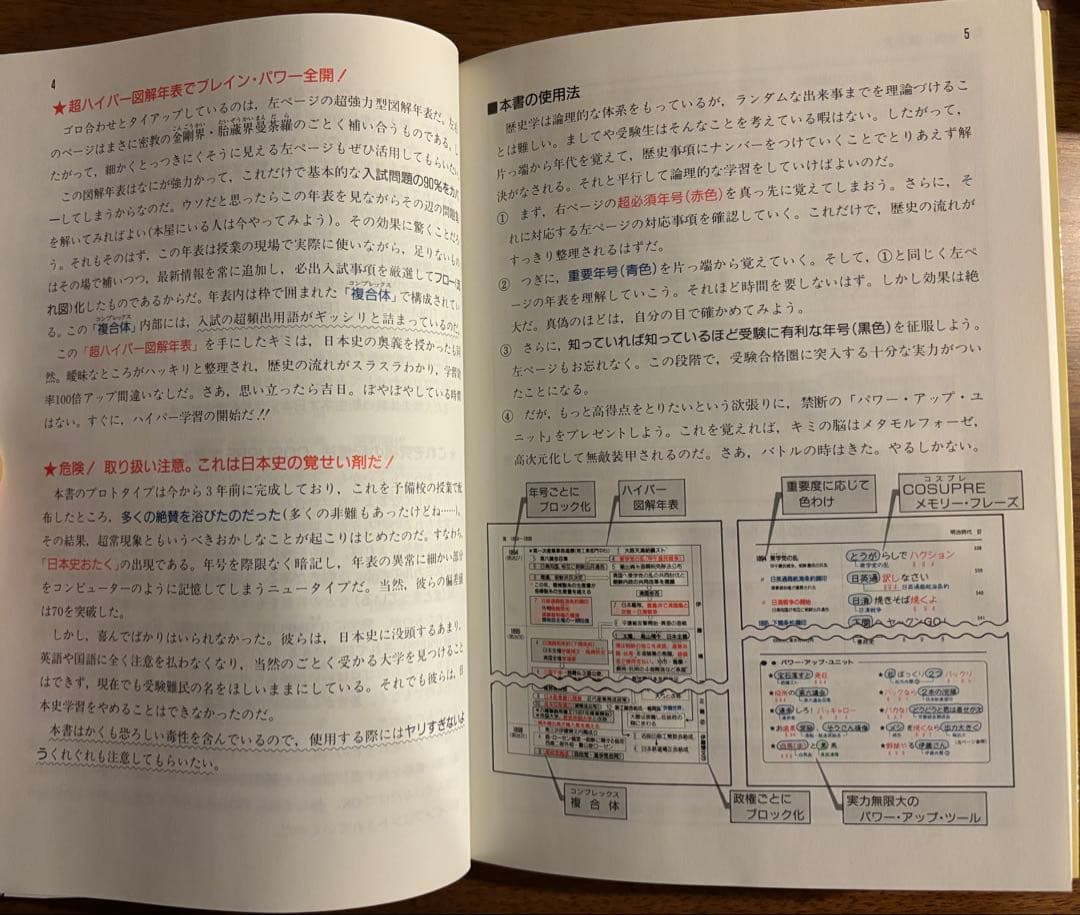 4
★超ハイパー図解年表でブレイン・パワー全開！
ゴロ合わせとタイアップしているのは，左ページの超強力型図解年表だ。左右
のページはまさに密教の金剛界・胎蔵界曼荼羅のごとく補い合うものである。し
たがって，細かくとっつきにくそうに見える左ページもぜひ活用してもらいたい
この図解年表はなにが強力かって，これだけで基本的な入試問題の90％を
ーしてしまうからなのだ。ウソだと思ったらこの年表を見ながらその辺の問題集
を解いてみればよい(本屋にいる人は今やってみよう)。その効果に驚くことだろ
う。それもそのはず，この年表は授業の現場で実際に使いながら，足りないもの
はその場で補いつつ，最新情報を常に追加し，必出入試事項を厳選してフロー(流
れ図)化したものであるからだ。年表内は枠で囲まれた「複合体」で構成されてい
る。この「複合体」内部には，入試の超頻出用語がギッシリと詰まっているのだ。
この「超ハイパー図解年表」を手にしたキミは，日本史の奥義を授かったも同
然。曖昧なところがハッキリと整理され，歴史の流れがスラスラわかり，学習効
率100倍アップ間違いなしだ。さあ，思い立ったら吉日。ぼやぼやしている時間
はない。すぐに，ハイパー学習の開始だ!!
★危険！ 取り扱い注意。これは日本史の覚せい剤だ！
本書のプロトタイプは今から３年前に完成しており，これを予備校の授業で配
布したところ，多くの絶賛を浴びたのだった(多くの非難もあったけどね……)。
その結果，超常現象ともいうべきおかしなことが起こりはじめたのだ。すなわち，
「日本史おたく」の出現である。年号を際限なく暗記し，年表の異常に細かい部分
をコンピューターのように記憶してしまうニュータイプだ。当然，彼らの偏差値
は70を突破した。
しかし，喜んでばかりはいられなかった。彼らは，日本史に没頭するあまり，
英語や国語に全く注意を払わなくなり，当然のごとく受かる大学を見つけること
はできず，現在でも受験難民の名をほしいままにしている。それでも彼らは，日
本史学習をやめることはできなかったのだ。
本書はかくも恐ろしい毒性を含んでいるので，使用する際にはヤリすぎないよ
うくれぐれも注意してもらいたい。
5
■本書の使用法
歴史学は論理的な体系をもっているが，ランダムな出来事までを理論づけるこ
とは難しい。ましてや受験生はそんなことを考えている暇はない。したがって，
片っ端から年代を覚えて，歴史事項にナンバーをつけていくことでとりあえず解
決がなされる。それと平行して論理的な学習をしていけばよいのだ。
① まず，右ページの超必須年号(赤色)を真っ先に覚えてしまおう。さらに，そ
れに対応する左ページの対応事項を確認していく。これだけで，歴史の流れが
すっきり整理されるはずだ。
② つぎに，重要年号(青色)を片っ端から覚えていく。そして，①と同じく左ペ
ージの年表を理解していこう。それほど時間を要しないはず。しかし効果は絶
大だ。真偽のほどは，自分の目で確かめてみよう。
③ さらに，知っていれば知っているほど受験に有利な年号(黒色)を征服しよう。
左ページもお忘れなく。この段階で，受験合格圏に突入する十分な実力がつい
たことになる。
④ だが，もっと高得点をとりたいという欲張りに，禁断の「パワー・アップ・ユ
ニット」をプレゼントしよう。これを覚えれば，キミの脳はメタモルフォーゼ，
高次元化して無敵装甲されるのだ。さあ，バトルの時はきた。やるしかない。
年号ごとに
ブロック化
ハイパー
図解年表
重要度に応じて
色わけ
コスプレ
COSUPRE
メモリー・フレーズ
明治時代
1894 東学党の乱
とうがらしでハクション
日英通商航海条約調印
日英通 訳しなさい
日清戦争の開始
日清 焼きそば焼くよ
1895 下関条約調印
パワー・アップ・ユニット
コンプレックス
複合体
政権ごとに
ブロック化
実力無限大の
パワー・アップ・ツール